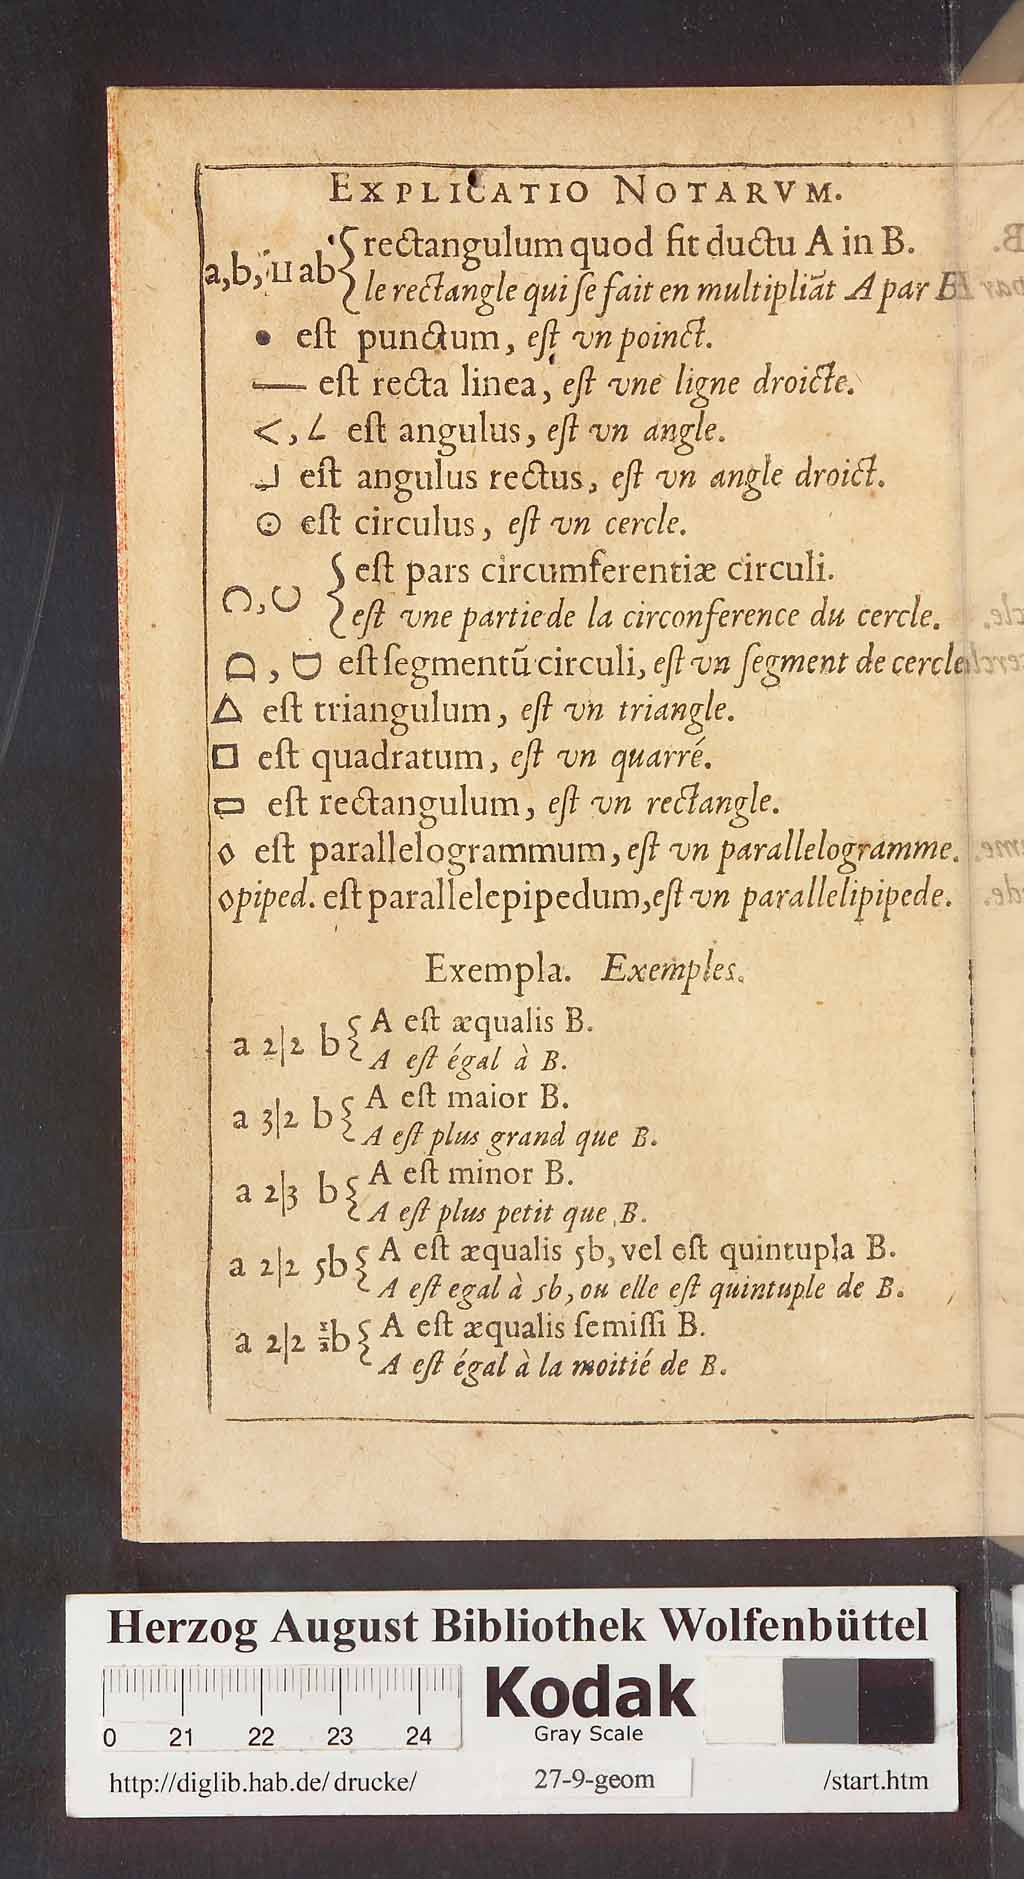 EXPLICATIO NOTARVM.
a,b, ⊔ ab { rectangulum quod fit ductu A in B.
le rectangle qui ſe fait en multipliãt A par B
• eſt punctum, eſt vn poinct.
— eſt recta linea, eſt vne ligne droicte.
<, ∠ eſt angulus, eſt vn angle.
⅃ eſt angulus rectus, eſt vn angle droict.
⊙ eſt circulus, eſt vn cercle.
◠, ◡ { eſt pars circumferentiæ circuli.
eſt vne partie de la circonference du cercle.
⌓, ᗜ eſt ſegmentũ circuli, eſt vn ſegment de cercle
△ eſt triangulum, eſt vn triangle.
□ eſt quadratum, eſt vn quarré.
▭ eſt rectangulum, eſt vn rectangle.
◇ eſt parallelogrammum, eſt vn parallelogramme.
◇piped. eſt parallelepipedum, eſt vn parallelipipede.
Exempla. Exemples.
a 2|2 b { A eſt æqualis B.
A eſt égal à B.
a 3|2 b { A eſt maior B.
A eſt plus grand que B.
a 2|3 b { A eſt minor B.
A eſt plus petit que B.
a 2|2 5b { A eſt æqualis 5b, vel eſt quintupla B.
A eſt egal à 5b, ou elle eſt quintuple de B.
a 2|2 ½b { A eſt æqualis ſemiſſi B.
A eſt égal à la moitié de B.
Herzog August Bibliothek Wolfenbüttel
0 21 22 23 24
Kodak
Gray Scale
http://diglib.hab.de/drucke/ 27-9-geom /start.htm